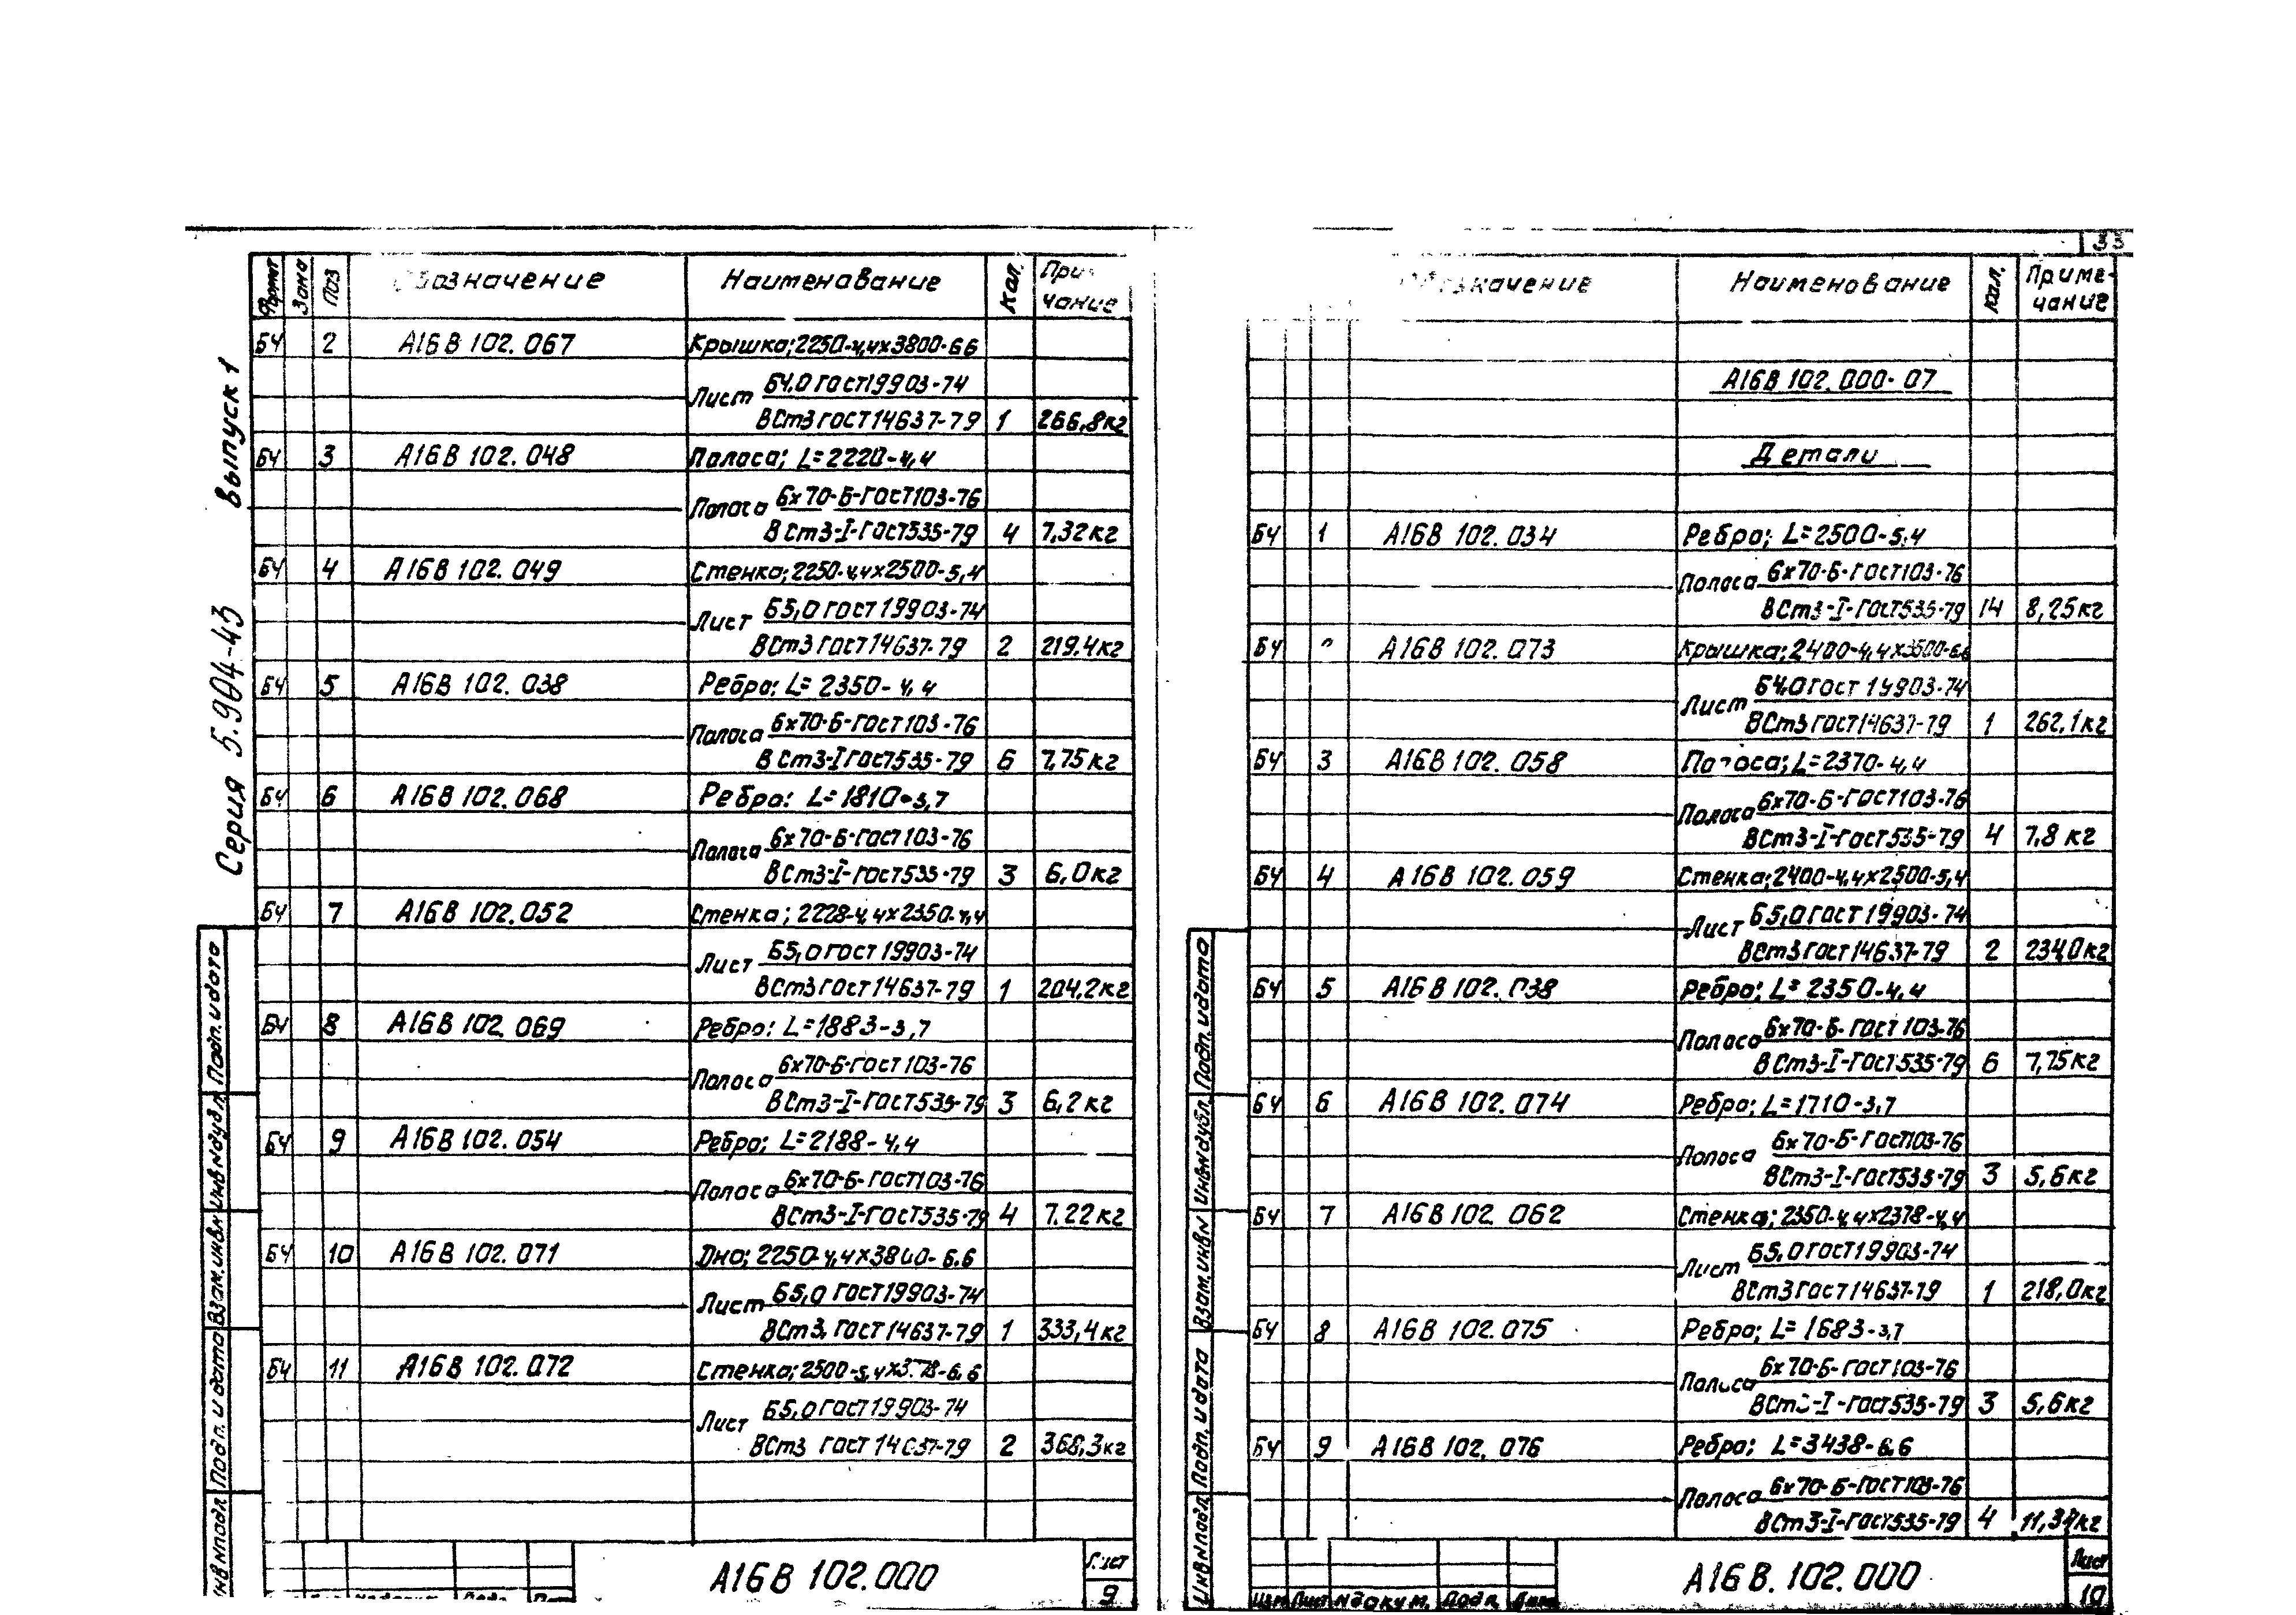 33
Серия 5.904-43 выпуск 1
Формат Зона Поз Обозначение Наименование Кол. При чание
БЧ 2 А16В 102.067 Крышка; 2250-4,4х3800-6,6
Лист Б4,0 ГОСТ 19903-74
ВСт3 ГОСТ 14637-79 1 266,8кг
БЧ 3 А16В 102.048 Полоса; L=2220-4,4
Полоса 6х70-Б-ГОСТ 103-76
ВСт3-I-ГОСТ 535-79 4 7,32кг
БЧ 4 А16В 102.049 Стенка; 2250-4,4х2500-5,4
Лист Б5,0 ГОСТ 19903-74
ВСт3 ГОСТ 14637-79 2 219.4кг
БЧ 5 А16В 102.038 Ребро; L=2350-4,4
Полоса 6х70-Б-ГОСТ 103-76
ВСт3-I ГОСТ 535-79 6 7,75кг
БЧ 6 А16В 102.068 Ребро: L=1810-3,7
Полоса 6х70-Б-ГОСТ 103-76
ВСт3-I-ГОСТ 535-79 3 6,0кг
БЧ 7 А16В 102.052 Стенка; 2228-4,4х2350-4,4
Лист Б5,0 ГОСТ 19903-74
ВСт3 ГОСТ 14637-79 1 204,2кг
БЧ 8 А16В 102.069 Ребро: L=1883-3,7
Полоса 6х70-Б-ГОСТ 103-76
ВСт3-I-ГОСТ 535-79 3 6,2кг
БЧ 9 А16В 102.054 Ребро; L=2188-4,4
Полоса 6х70-Б-ГОСТ 103-76
ВСт3-I-ГОСТ 535-79 4 7.22кг
БЧ 10 А16В 102.071 Дно; 2250-4,4х3800-6.6
Лист Б5,0 ГОСТ 19903-74
ВСт3 ГОСТ 14637-79 1 333,4кг
БЧ 11 А16В 102.072 Стенка; 2500-5,4х3778-6,6
Лист Б5,0 ГОСТ 19903-74
ВСт3 ГОСТ 14637-79 2 368,3кг
Подп. и дата
Инв N дубл.
Взам. инв N
Подп. и дата
Инв N подл.
А16В 102.000
Лист
9
Обозначение Наименование Кол. Приме-чание
А16В 102.000-07
Детали
БЧ 1 А16В 102.034 Ребро; L=2500-5,4
Полоса 6х70-Б-ГОСТ 103-76
ВСт3-I-ГОСТ 535-79 14 8,25кг
БЧ А16В 102.073 Крышка; 2400-4,4х3500-6,6
Лист Б4,0 ГОСТ 19903-74
ВСт3 ГОСТ 14637-79 1 262,1кг
БЧ 3 А16В 102.058 Полоса; L=2370-4,4
Полоса 6х70-Б-ГОСТ 103-76
ВСт3-I-ГОСТ 535-79 4 7,8 кг
БЧ 4 А16В 102.059 Стенка; 2400-4,4х2500-5,4
Лист Б5,0 ГОСТ 19903-74
ВСт3 ГОСТ 14637-79 2 234,0кг
БЧ 5 А16В 102.038 Ребро; L=2350-4,4
Полоса 6х70-Б-ГОСТ 103-76
ВСт3-I-ГОСТ 535-79 6 7,75кг
БЧ 6 А16В 102.074 Ребро; L=1710-3,7
Полоса 6х70-Б-ГОСТ 103-76
ВСт3-I-ГОСТ 535-79 3 5,6кг
БЧ 7 А16В 102 062 Стенка; 2350-4,4х2378-4,4
Лист Б5,0 ГОСТ 19903-74
ВСт3 ГОСТ 14637-79 1 218,0кг
БЧ 8 А16В 102.075 Ребро; L=1683-3,7
Полоса 6х70-Б-ГОСТ 103-76
ВСт3-I-ГОСТ 535-79 3 5,6кг
БЧ 9 А16В 102.076 Ребро; L=3438-6,6
Полоса 6х70-Б-ГОСТ 103-76
ВСт3-I-ГОСТ 535-79 4 11,34кг
Подп. и дата
Инв N дубл.
Взам. инв N
Подп. и дата
Инв N подл.
Изм Лист N докум. Подп. Дата
А16В.102.000
Лист
10